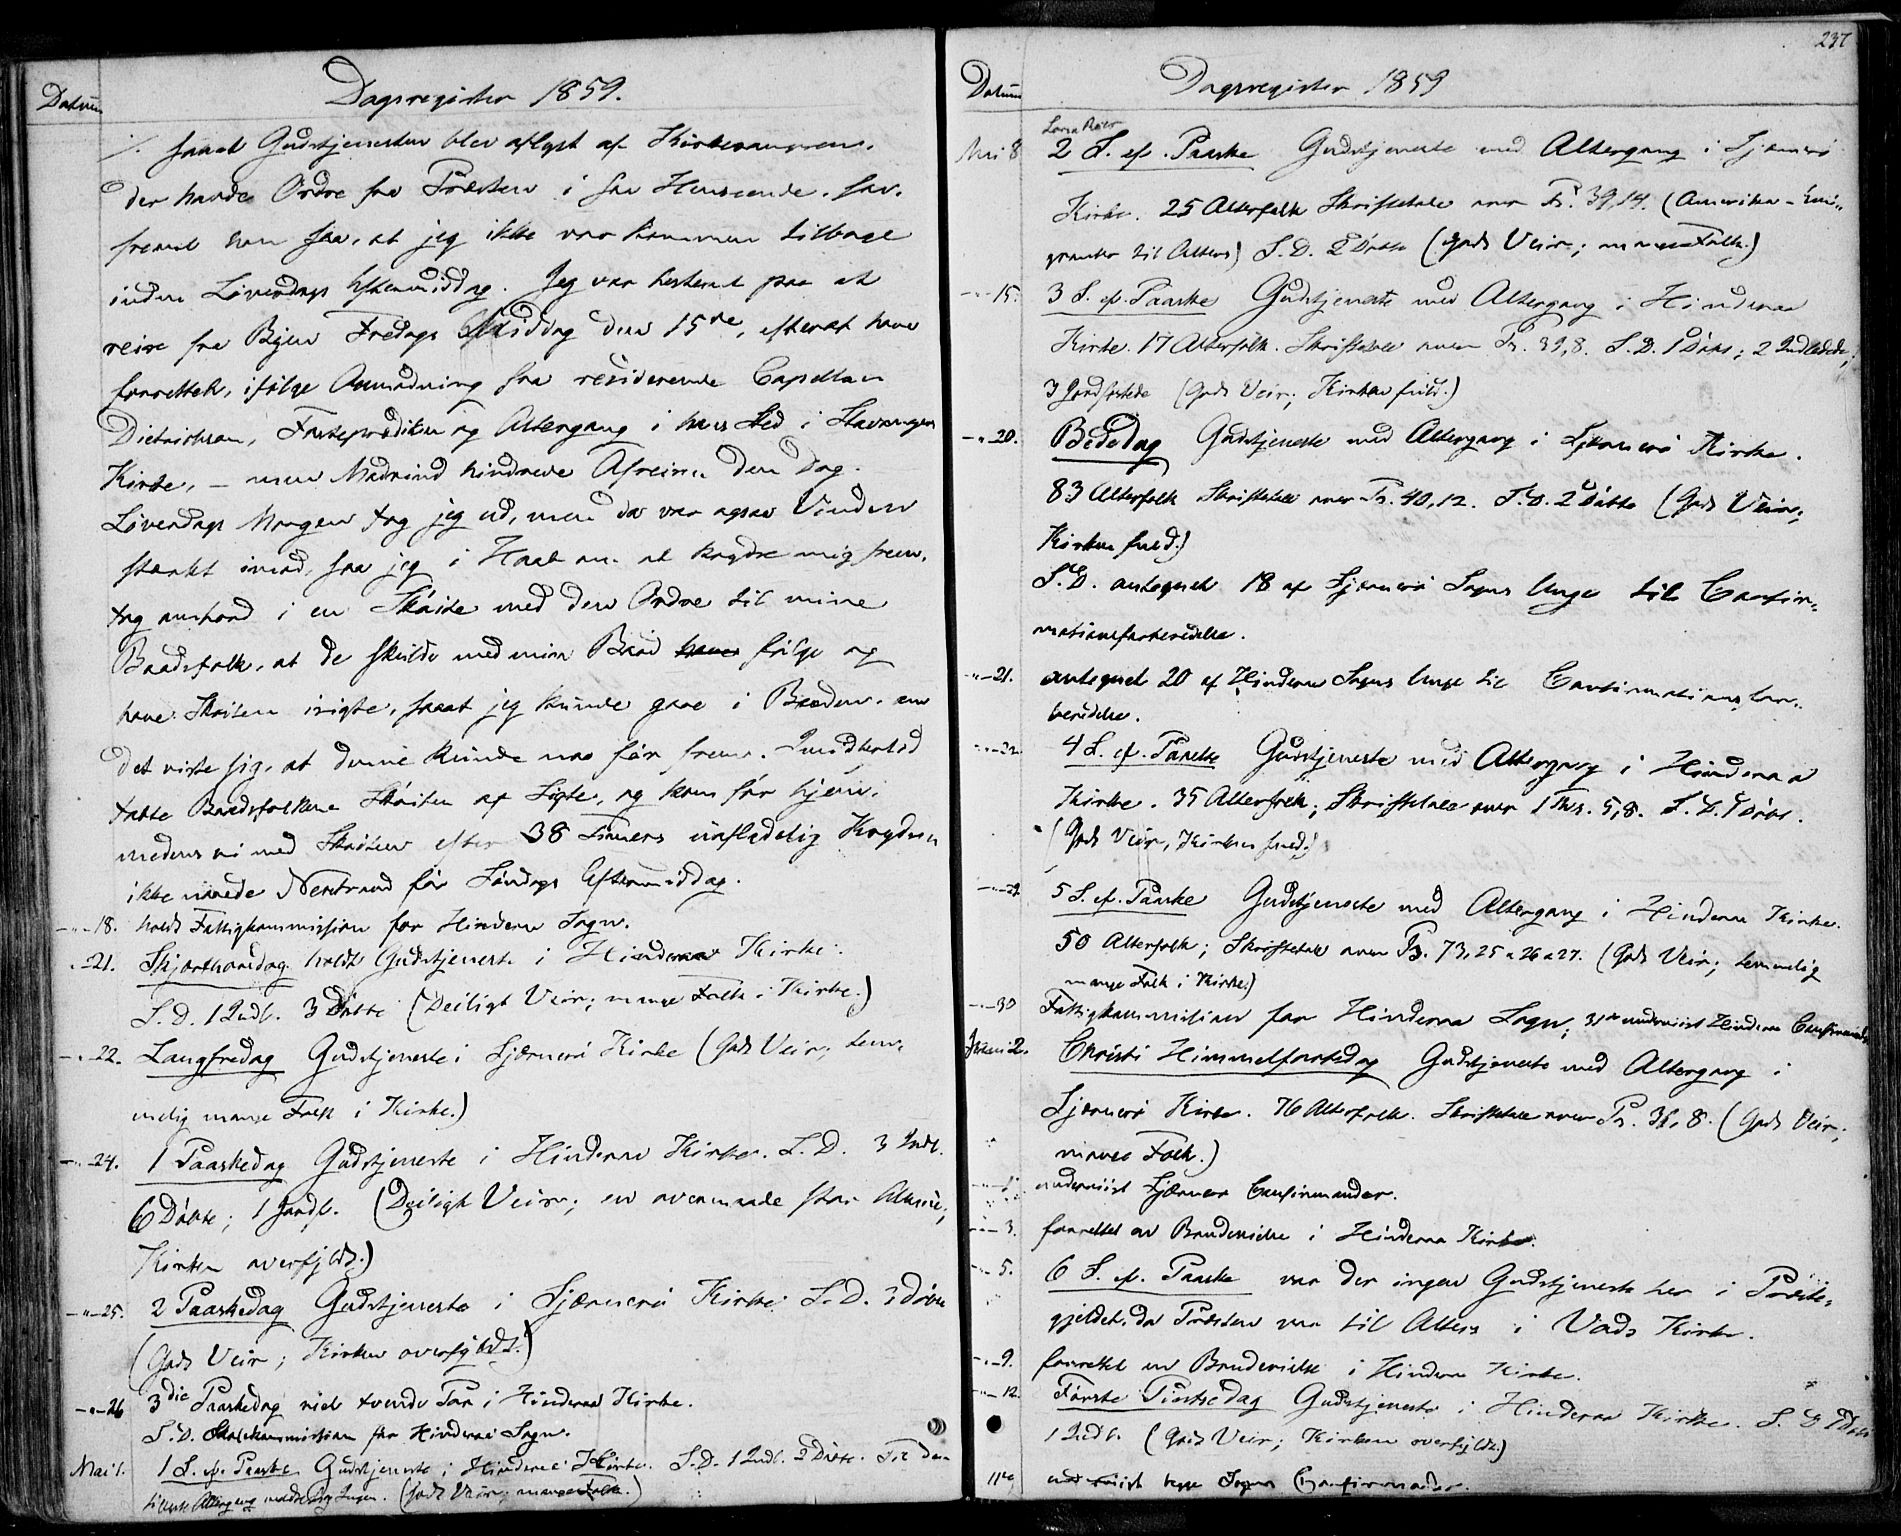 Datum
Dagsregister 1859.
/. saaat Gudstjenesten blev aflyst af Kirkesangeren,
der havde Ordre fra Præsten i saa Henseende, saa-
fremt han saa, at jeg ikke var kommen tilbage
inden Løverdags Eftermiddag. Jeg var bestemt paa at
reise fra Byen Fredags Middag den 15de, efterat have
forrettet, ifølge Anmodning fra residerende Capellan
Dietrichson, Fasteprædiken og Altergang i hans Sted i Stavanger
Kirke, – men Modvind hindrede Afreisen den Dag.
Løverdags Morgen tog jeg ud, men da var ogsaa Vinden
stærkt imod, saa jeg i Haab om at krydse mig frem,
tog ombord i en Skøite med den Ordre til mine
Baadsfolk, at de skulde med min Baad følge og
have Skøiten isigte, saaat jeg kunde gaae i Baaden, om
det viste sig, at denne kunde naa før frem. Imidlertid
tabte Baadsfolkene Skøiten af Sigte, og kom før hjem,
medens vi med Skøiten efter 38 Timers uafladelig Krydsen
ikke naaede Nerstrand før Søndags Eftermiddag.
-"-18. holdt Fattigkommission for Hinderaa Sogn.
-"-21. Skjærthorsdag holdt Gudstjeneste i Hinderaa Kirke.
S. D. 1 Indl. 3 Døbte (Deiligt Veir; mange Folk i Kirke.)
-"-22. Langfredag Gudstjeneste i Sjærnerø Kirke (Godt Veir; tem-
melig mange Folk i Kirke.)
-"-24. 1 Paaskedag Gudstjeneste i Hinderaa Kirke. S. D. 3 Indl.
6 Døbte; 1 Jordf. (Deiligt Veir; en overmaade stor Almue;
Kirken overfyldt.)
-"-25. 2 Paaskedag Gudstjeneste i Sjærnerø Kirke. S. D. 3 Døbte
(Godt Veir; Kirken overfyldt.)
-"-26 3die Paaskedag viet tvende Par i Hinderaa Kirke.
S. D. Skolekommission for Hinderaa Sogn.
Mai 1. 1 S. ef. Paaske Gudstjeneste i Hinderaa Kirke. S. D. 1 Indl. 2 Døbte. Til den
Altergang meldte sig Ingen. (Godt Veir; mange Folk.)
237
Datum
Dagsregister 1859
Mai 8 2 S. ef. Paaske Gudstjeneste med Altergang i Sjærnerø
Kirke. 25 Alterfolk Skriftetale over Ps. 39,14. (Amerika-Emi-
granter til Alters) S. D. 2 Døbte (Godt Veir; mange Folk.)
-"-15. 3 S. ef. Paaske Gudstjeneste med Altergang i Hinderaa
Kirke. 17 Alterfolk. Skriftetale over Ps. 39,8. S. D. 1 Døbt; 2 Indledede;
3 Jordfæstede (Godt Veir; Kirken fuld.)
-"-20. Bededag Gudstjeneste med Altergang i Sjærnerø Kirke.
83 Alterfolk Skriftetale over Ps. 40,12. S. D. 2 Døbte (Godt Veir;
Kirken fuld.)
S. D. antegnet 18 af Sjærnerø Sogns Unge til Confir-
mationsforberedelse.
-"-21. antegnet 20 af Hinderaa Sogns Unge til Confirmationsfor-
beredelse.
-"-22. 4 S. ef. Paaske Gudstjeneste med Altergang i Hinderaa
Kirke. 35 Alterfolk; Skriftetale over 1 Ths. 5,8. S. D. 1 Døbt.
(Godt Veir, Kirken fuld.)
-"-29. 5 S. ef. Paaske Gudstjeneste med Altergang i Hinderaa Kirke.
50 Alterfolk; Skriftetale over Ps. 73,25 a 26 a 27. (Godt Veir; temmelig
mange Folk i Kirke.)
-"-30 Fattigkommission for Hinderaa Sogn; 31te underviist Hinderaa Confirmander
Juni 2. Christi Himmelfartsdag Gudstjeneste med Altergang i
Sjærnerø Kirke. 76 Alterfolk. Skriftetale over Ps. 36,8. (Godt Veir;
mange Folk.)
underviist Sjærnerø Confirmander.
-"-3. forrettet en Brudevielse i Hinderaa Kirke.
-"-5. 6 S. ef. Paaske var der ingen Gudstjeneste her i Præste-
gjeldet, da Præsten var til Alters i Vads Kirke.
-"-9. forrettet en Brudevielse i Hinderaa Kirke.
-"-12. Første Pintsedag Gudstjeneste i Hinderaa Kirke. S. D. 1 Døbt
1 Indl. (Godt Veir; Kirken overfyldt.)
11te underviist begge Sognes Confirmander.